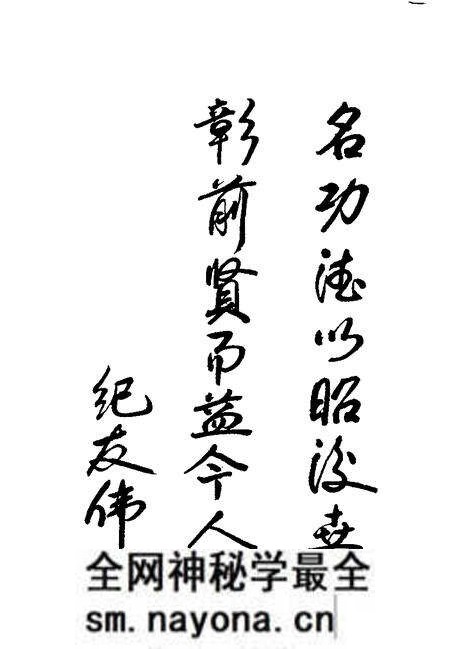 名功德以昭後世
彰前贤而益今人
纪友伟
全网神秘学最全
sm.nayona.cn